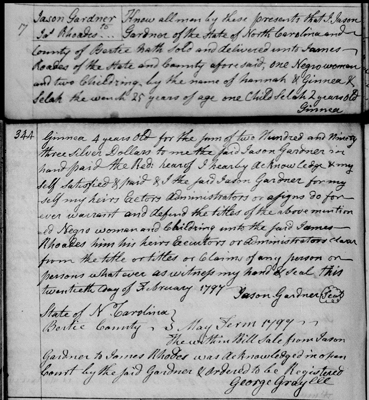 7 Jason Gardner Know all men by these presents that I Jason
to
Jas Rhodes... Gardner of the State of North Carolina and
County of Bertie hath Sold and delivered unto James
Roades of the State and County afore said, one Negro woman
and two Childring, by the name of hannah & Ginnea &
Selah the wench 25 years of age one Child Selah 2 years Old
Ginnea
344 Ginnea 4 years Old for the sum of two Hundred and Ninety
three Silver Dollars to me the said Jason Gardner in
hand paid the Red. hearof I hearby acknowledge & my
self Satisfied & paid & I the said Jason Gardner for my
self my heirs Exctors administrators or asigns do for
ever warrant and defend the titles of the above mention
ed Negro woman and Childring unto the said James
Rhoades him his heirs Executors or administrators clear
from the title or titles or Claims of any person or
persons what ever as witness my hand & Seal, this
twentieth day of February 1797
Jason Gardner (Seal)
State of N Carolina
Bertie County May Term 1797
The within Bill Sale from Jason
Gardner to James Rhodes was acknowledged in open
Court by the said Gardner & Ordered to be Registered
George Gray